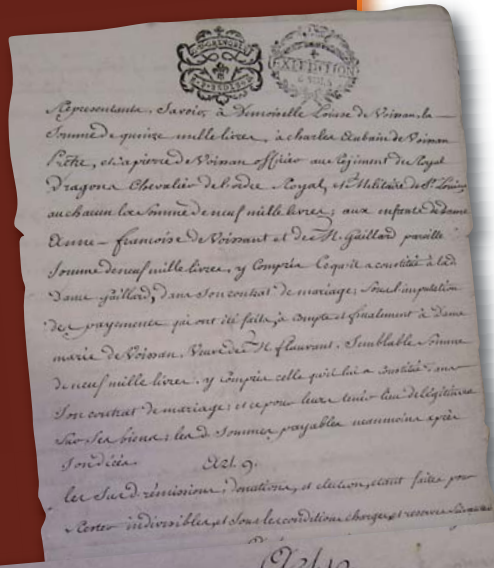 EXPEDITION
Representants. Savoir, à Demoiselle Louise de Voiman, la
Somme de quinze mille livres, à charles de Voiman
Prêtre, et à pierre de Voiman officier au Regiment du Royal
Dragons Chevalier de l'ordre Royal, et Militaire de St. Louis
au chacun la Somme de neuf mille livres; aux enfants de dame
Anne-francoise de Voissant et de Sr. Gaillard pareille
Somme de neuf mille livres, y Compris Ce qu'il a constitué à lad.
Dame Gaillard, dans Son contrat de mariage; Sous l'imputation
des payements qui ont été faits, à compte et finalement à Dame
marie de Voissan, Veuve de Sr. flauvant, Semblable Somme
de neuf mille livres, y compris celle qu'il lui a constitué dans
Son contrat de mariage; et ce pour leur tenir lieu de légitimes
Sur Ses biens; les d. Sommes payables neanmoins après
Son décès.
Art. 9.
les Susd. rémissions, donations, et election, étant faites pour
rester indivisibles, et Sous les conditions charges et reserves